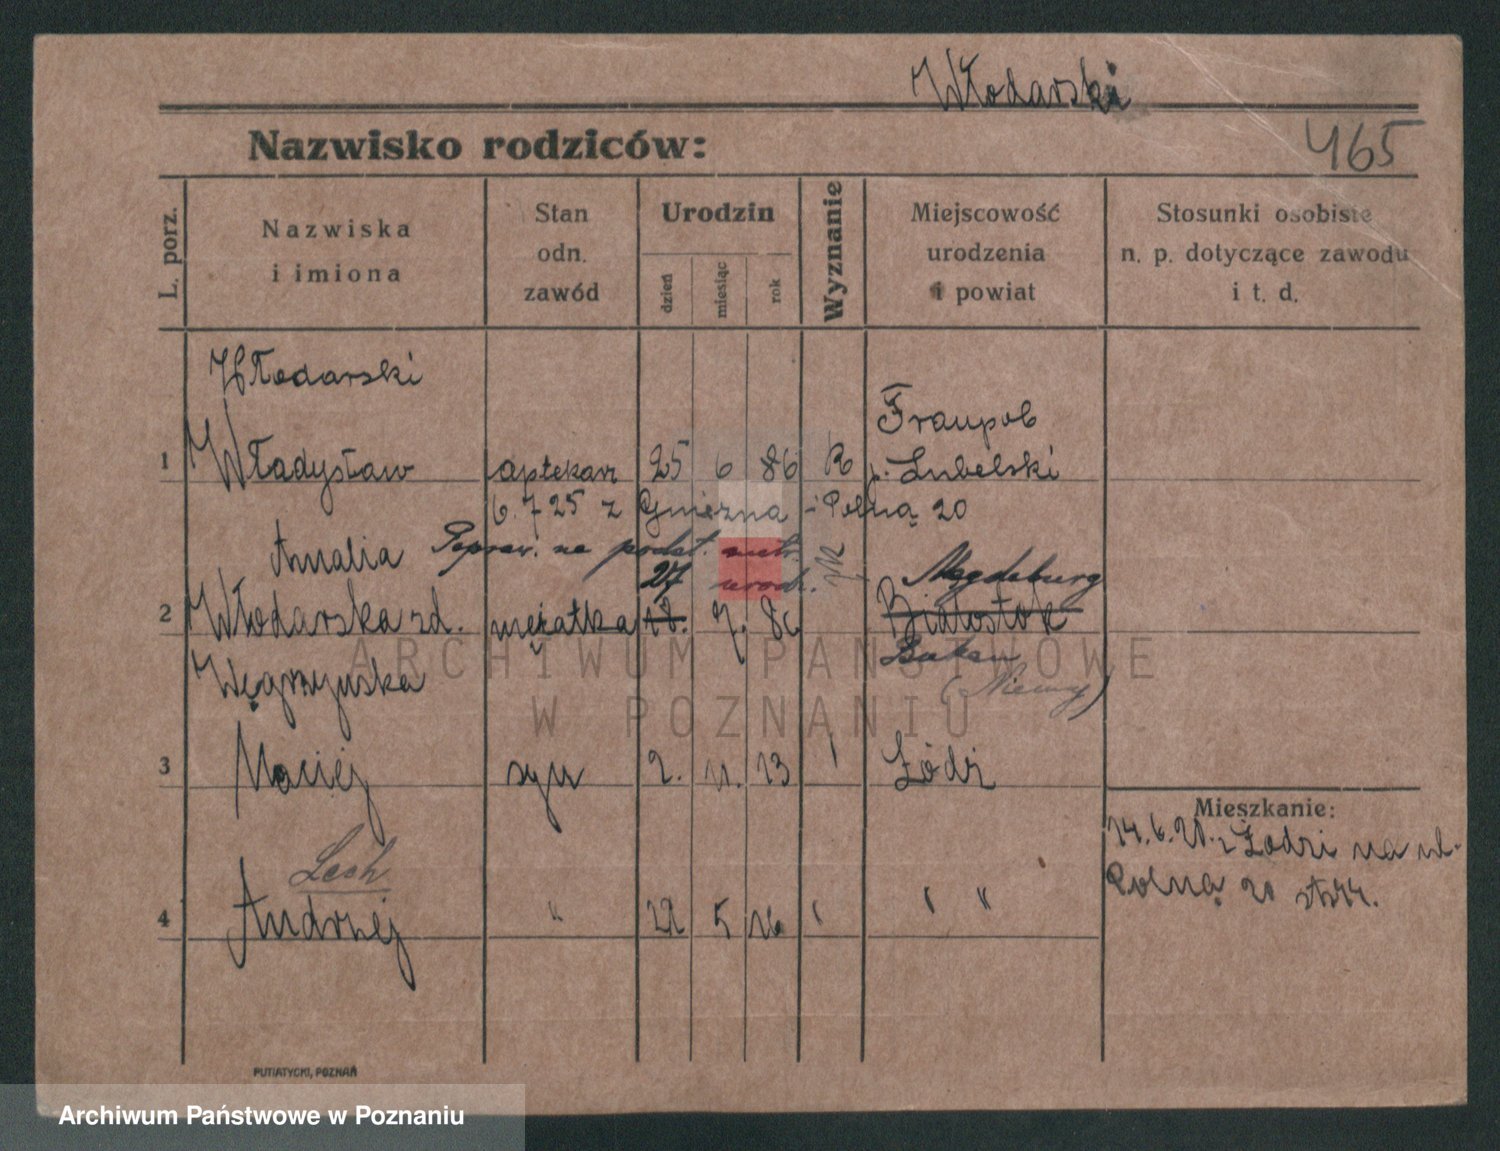 Włodarski
Nazwisko rodziców:
465
L. porz.
Nazwiska
i imiona
Stan
odn.
zawód
Urodzin
dzień
miesiąc
rok
Wyznanie
Miejscowość
urodzenia
i powiat
Stosunki osobiste
n. p. dotyczące zawodu
i t. d.
Włodarski
Frampol
1 Władysław aptekarz 25 6 86 R p. Lubelski
6. 7 25 z Gniezna - Polną 20
Amalia Popraw. na podst. metr.
27 urodz. Magdeburg
2 Włodarska zd. mężatka 18. 7. 86 Białostok
Węgrzynska Buckau
(Niemcy)
3 Maciej syn 2. 11. 13 Łódź
Mieszkanie:
14.6.21. z Łodzi na ul.
Polną 20
Lech
4 Andrzej " 22 5 16 " "
PUTIATYCKI, POZNAŃ
ARCHIWUM PAŃSTWOWE
W POZNANIU
Archiwum Państwowe w Poznaniu